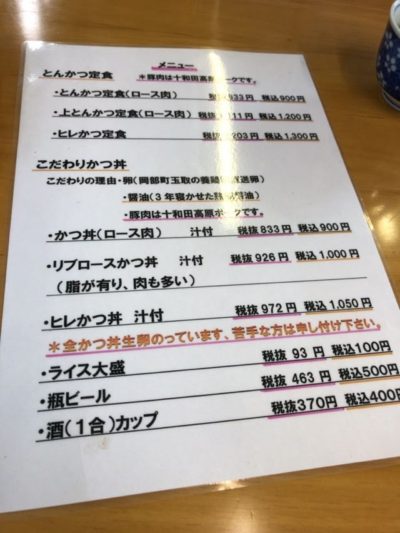 メニュー
とんかつ定食 ＊豚肉は十和田高原ポークです。
・とんかつ定食（ロース肉） 税抜833円 税込900円
・上とんかつ定食（ロース肉） 税抜1,111円 税込1,200円
・ヒレかつ定食 税抜1,203円 税込1,300円
こだわりかつ丼
こだわりの理由・卵（岡部町玉取の養鶏場直送卵）
・醤油（3年寝かせた 醤油）
・豚肉は十和田高原ポークです。
・かつ丼（ロース肉） 汁付 税抜833円 税込900円
・リブロースかつ丼 汁付 税抜926円 税込1,000円
（脂が有り、肉も多い）
・ヒレかつ丼 汁付 税抜972円 税込1,050円
＊全かつ丼生卵のっています、苦手な方は申し付け下さい。
・ライス大盛 税抜 93円 税込100円
・瓶ビール 税抜 463円 税込500円
・酒（1合）カップ 税抜370円 税込400円